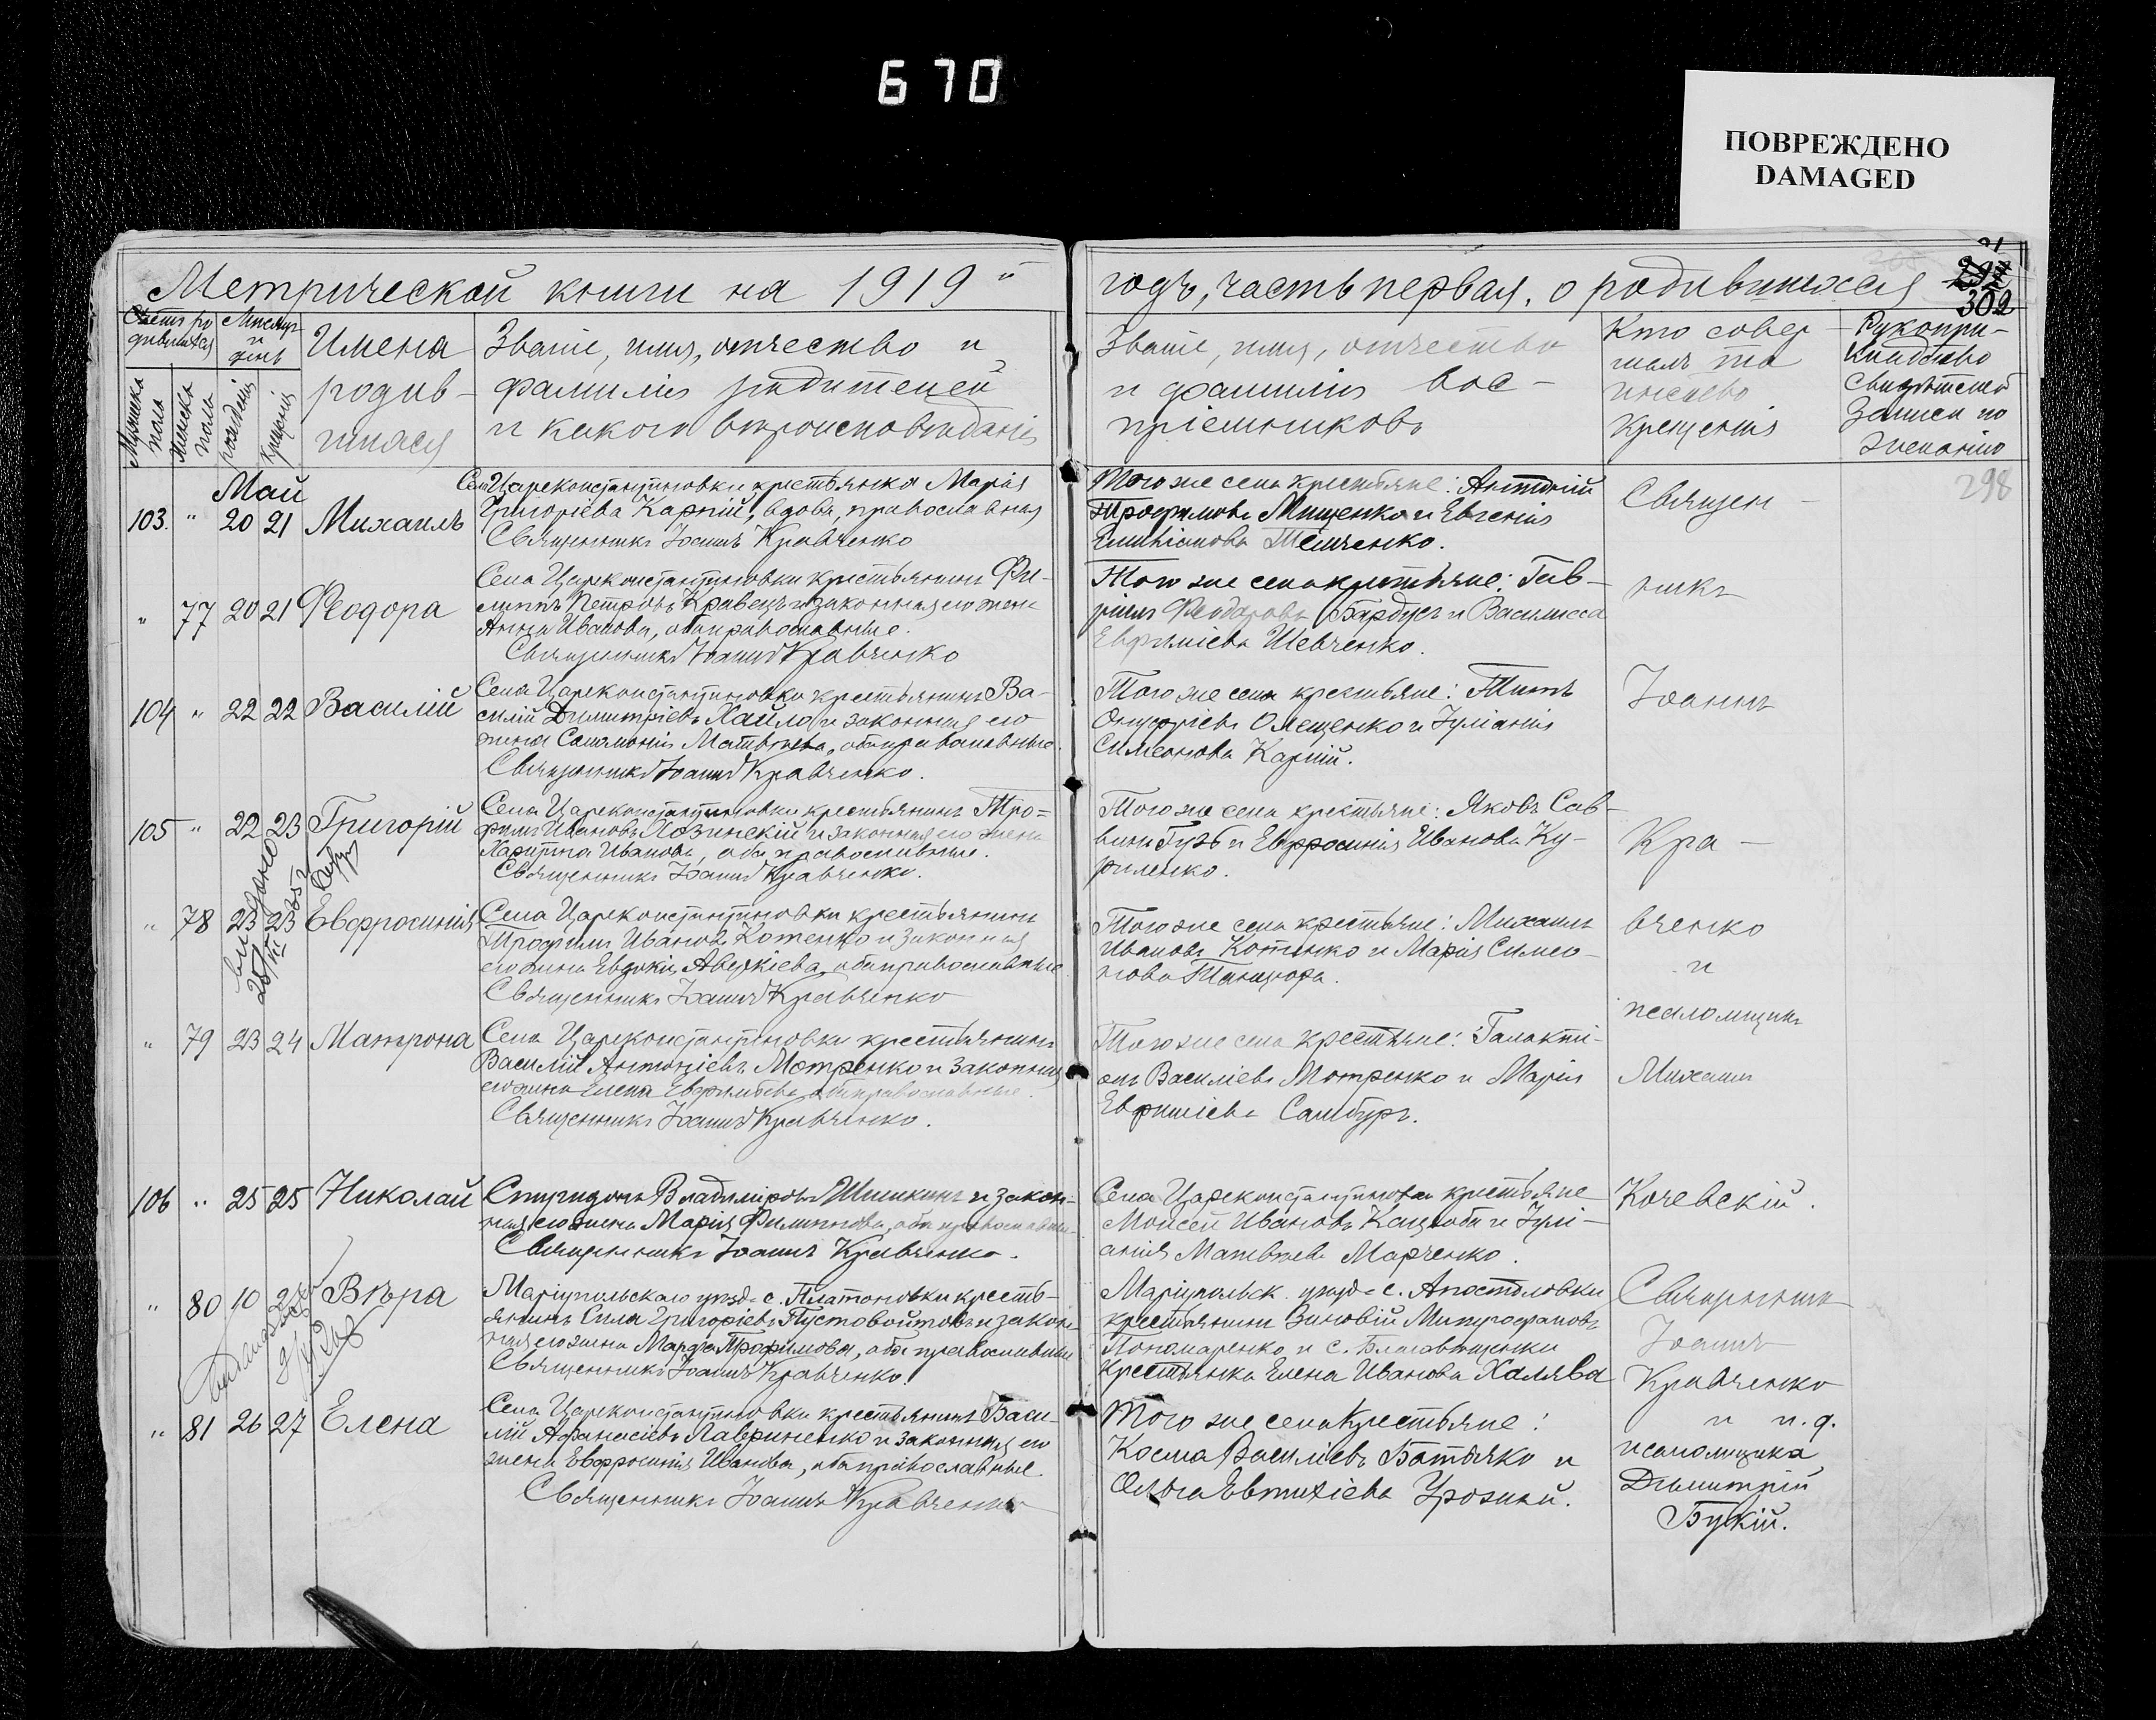 670
ПОВРЕЖДЕНО
DAMAGED
Метрической книги на 1919 й
годъ, часть первая, о родившихся
302
298
Счетъ родившихся
Мѣсяцъ и день
Имена родившихся
Званіе, имя, отчество и
фамилія родителей
и какого вѣроисповѣданія
Мужеска пола
Женска пола
рожденія
крещенія
Званіе, имя, отчество
и фамилія вос-
пріемниковъ
Кто совер-
шалъ та
инство
крещенія
Рукопри-
кладство
свидѣтелей
записи по
желанію
Май
103. " 20 21 Михаилъ
Села Цареконстантиновки крестьянка Марія
Григоріева Карпій, вдова, православная
Священникъ Іоаннъ Кравченко
Того же села крестьяне: Антоній
Трофимовъ Мищенко и Евгенія
" 77 20 21 Феодора
Села Цареконстантиновки крестьянинъ Фи-
липпъ Петровъ Кравецъ и законная его жена
Анна Иванова, оба православные.
Священникъ Іоаннъ Кравченко
Того же села крестьяне: Гав-
ріилъ Феодоровъ Бардусъ и Василисса
Евфиміева Шевченко.
104 " 22 22 Василій
Села Цареконстантиновки крестьянинъ Ва-
силій Димитріевъ Хайло и законная его
жена Соломонія Матвѣева, оба православные.
Священникъ Іоаннъ Кравченко.
Того же села крестьяне: Титъ
Онуфріевъ Олещенко и Іуліанія
Симеонова Карпій.
105 " 22 23 Григорій
Села Цареконстантиновки крестьянинъ Тро=
фимъ Ивановъ Лозинскій и законная его жена
Харитина Иванова, оба православные.
Священникъ Іоаннъ Кравченко.
Того же села крестьяне: Яковъ Сав-
винъ Гузь и Евфросинія Иванова Ку-
риленко.
" 78 23 23 Евфросинія
Села Цареконстантиновки крестьянинъ
Трофимъ Ивановъ Котенко и законная
его жена Евдокія Аверкіева, оба православные
Священникъ Іоаннъ Кравченко
Того же села крестьяне: Михаилъ
Ивановъ Котенко и Марія Симео-
нова
" 79 23 24 Матрона
Села Цареконстантиновки крестьянинъ
Василій Антоніевъ Мотренко и законная
его жена Елена Евфиміева, оба православные.
Священникъ Іоаннъ Кравченко.
Того же села крестьяне: Галакті-
онъ Василіевъ Мотренко и Марія
Евфиміева Самбуръ.
106 " 25 25 Николай
Спиридонъ Владиміровъ Шишкинъ и закон-
ная его жена Марія Филиппова, оба православные.
Священникъ Іоаннъ Кравченко.
Села Цареконстантиновки крестьяне
Моисей Ивановъ Кацюба и Іулі-
анія Матвѣева Марченко.
" 80 10 27 Вѣра
Маріупольскаго уѣзда с. Платоновки кресть-
янинъ Сила Григоріевъ Пустовойтовъ и закон-
ная его жена Марфа Трофимова, оба православные
Священникъ Іоаннъ Кравченко.
Маріупольск. уѣзда с. Апостоловки
крестьянинъ Зиновій Митрофановъ
Пономаренко и с. Благовѣщенки
крестьянка Елена Иванова Халява
" 81 26 27 Елена
Села Цареконстантиновки крестьянинъ Васи-
лій Афанасіевъ Лавриненко и законная его
жена Евфросинія Иванова, оба православные.
Священникъ Іоаннъ Кравченко
Того же села крестьяне:
Косма Василіевъ Батѣчко и
Ольга Евтихіева Грозный.
Священ-
никъ
Іоаннъ
Кра-
вченко
и
псаломщикъ
Михаилъ
Кочевскій.
Священникъ
Іоаннъ
Кравченко
и и. д.
псаломщика
Димитрій
Буцкій.